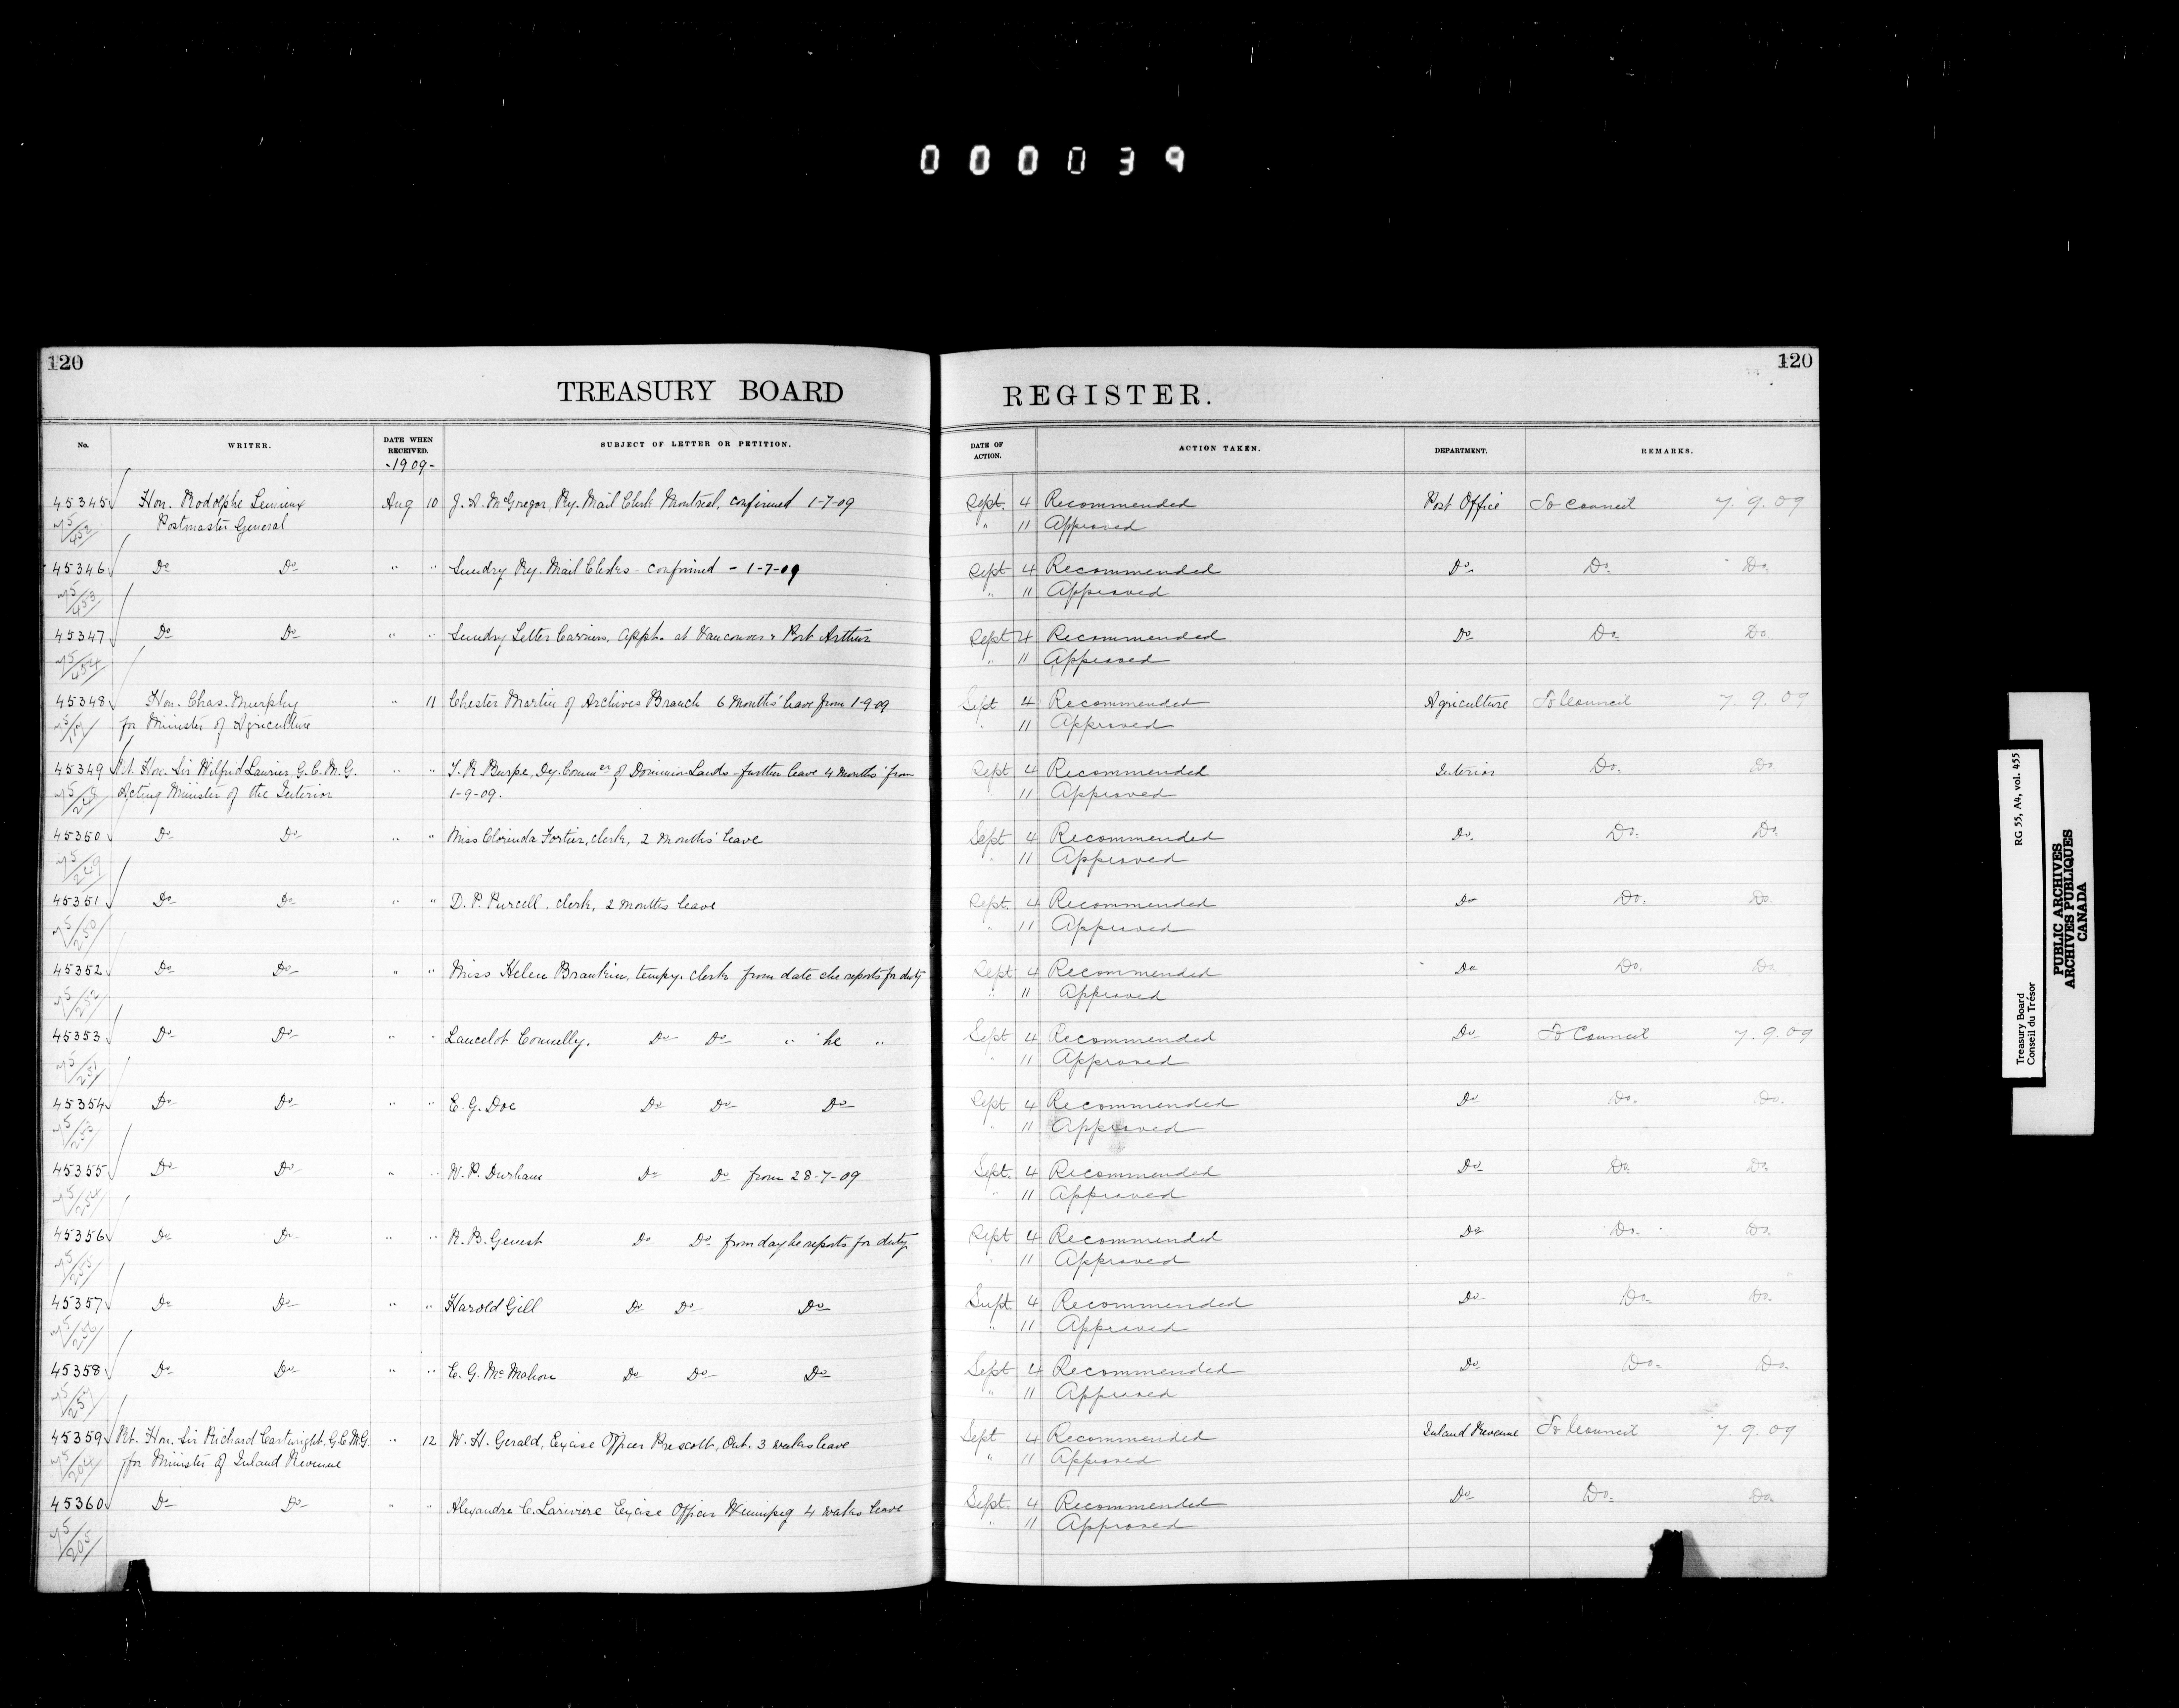 000039
120
TREASURY BOARD
No. WRITER. DATE WHEN RECEIVED. SUBJECT OF LETTER OR PETITION.
-1909-
45345 Hon. Rodolphe Lemieux Aug 10 J. A. McGregor, Ry. Mail Clerk Montreal, confirmed 1-7-09
Postmaster General
45346 Do Do " " Sundry Ry. Mail Clerks - confirmed - 1-7-09
45347 Do Do " " Sundry Letter Carriers, appts. at Vancouver & Port Arthur
45348 Hon. Chas. Murphy " 11 Chester Martin of Archives Branch 6 Months' leave from 1-9-09
for Minister of Agriculture
45349 Rt. Hon. Sir Wilfrid Laurier G.C.M.G. " " Burpe, Dy. Commer of Dominion Lands - further leave 4 Months' from
Acting Minister of the Interior 1-9-09.
45350 Do Do " " Miss Clorinda Fortier, clerk, 2 Months' leave
45351 Do Do " " D. P. Purcell. clerk, 2 months leave
45352 Do Do " " Miss Helen tempy. clerk from date she reports for duty
45353 Do Do " " Lancelot Connelly. Do Do " he "
45354 Do Do " " E. G. Doe Do Do Do
45355 Do Do " " W. P. Durham Do Do from 28-7-09
45356 Do Do " " R. B. Genest Do Do from day he reports for duty
45357 Do Do " " Harold Gill Do Do Do
45358 Do Do " " E. G. McMahon Do Do Do
45359 Rt. Hon. Sir Richard Cartwright, G.C.M.G. " 12 W. H. Gerald, Excise Officer Prescott, Ont. 3 weeks leave
for Minister of Inland Revenue
45360 Do Do " " Alexandre C. Lariviere Excise Officer Winnipeg 4 weeks leave
120
REGISTER.
DATE OF ACTION. ACTION TAKEN. DEPARTMENT. REMARKS.
Sept. 4 Recommended Post Office To Council 7.9.09
" 11 Approved
Sept 4 Recommended Do Do. Do.
" 11 Approved
Sept 4 Recommended Do Do. Do.
" 11 Approved
Sept 4 Recommended Agriculture To Council 7.9.09
" 11 Approved
Sept 4 Recommended Interior Do. Do
" 11 Approved
Sept 4 Recommended Do. Do. Do.
" 11 Approved
Sept. 4 Recommended Do Do. Do.
" 11 Approved
Sept 4 Recommended Do Do. Do
" 11 Approved
Sept 4 Recommended Do To Council 7.9.09
" 11 Approved
Sept 4 Recommended Do Do. Do.
" 11 Approved
Sept. 4 Recommended Do Do. Do.
" 11 Approved
Sept 4 Recommended Do Do. Do.
" 11 Approved
Sept 4 Recommended Do Do. Do.
" 11 Approved
Sept 4 Recommended Do Do. Do.
" 11 Approved
Sept 4 Recommended Inland Revenue To Council 7.9.09
" 11 Approved
Sept. 4 Recommended Do Do. Do.
" 11 Approved
Treasury Board RG 55, A4, vol. 455
Conseil du Trésor
PUBLIC ARCHIVES
ARCHIVES PUBLIQUES
CANADA